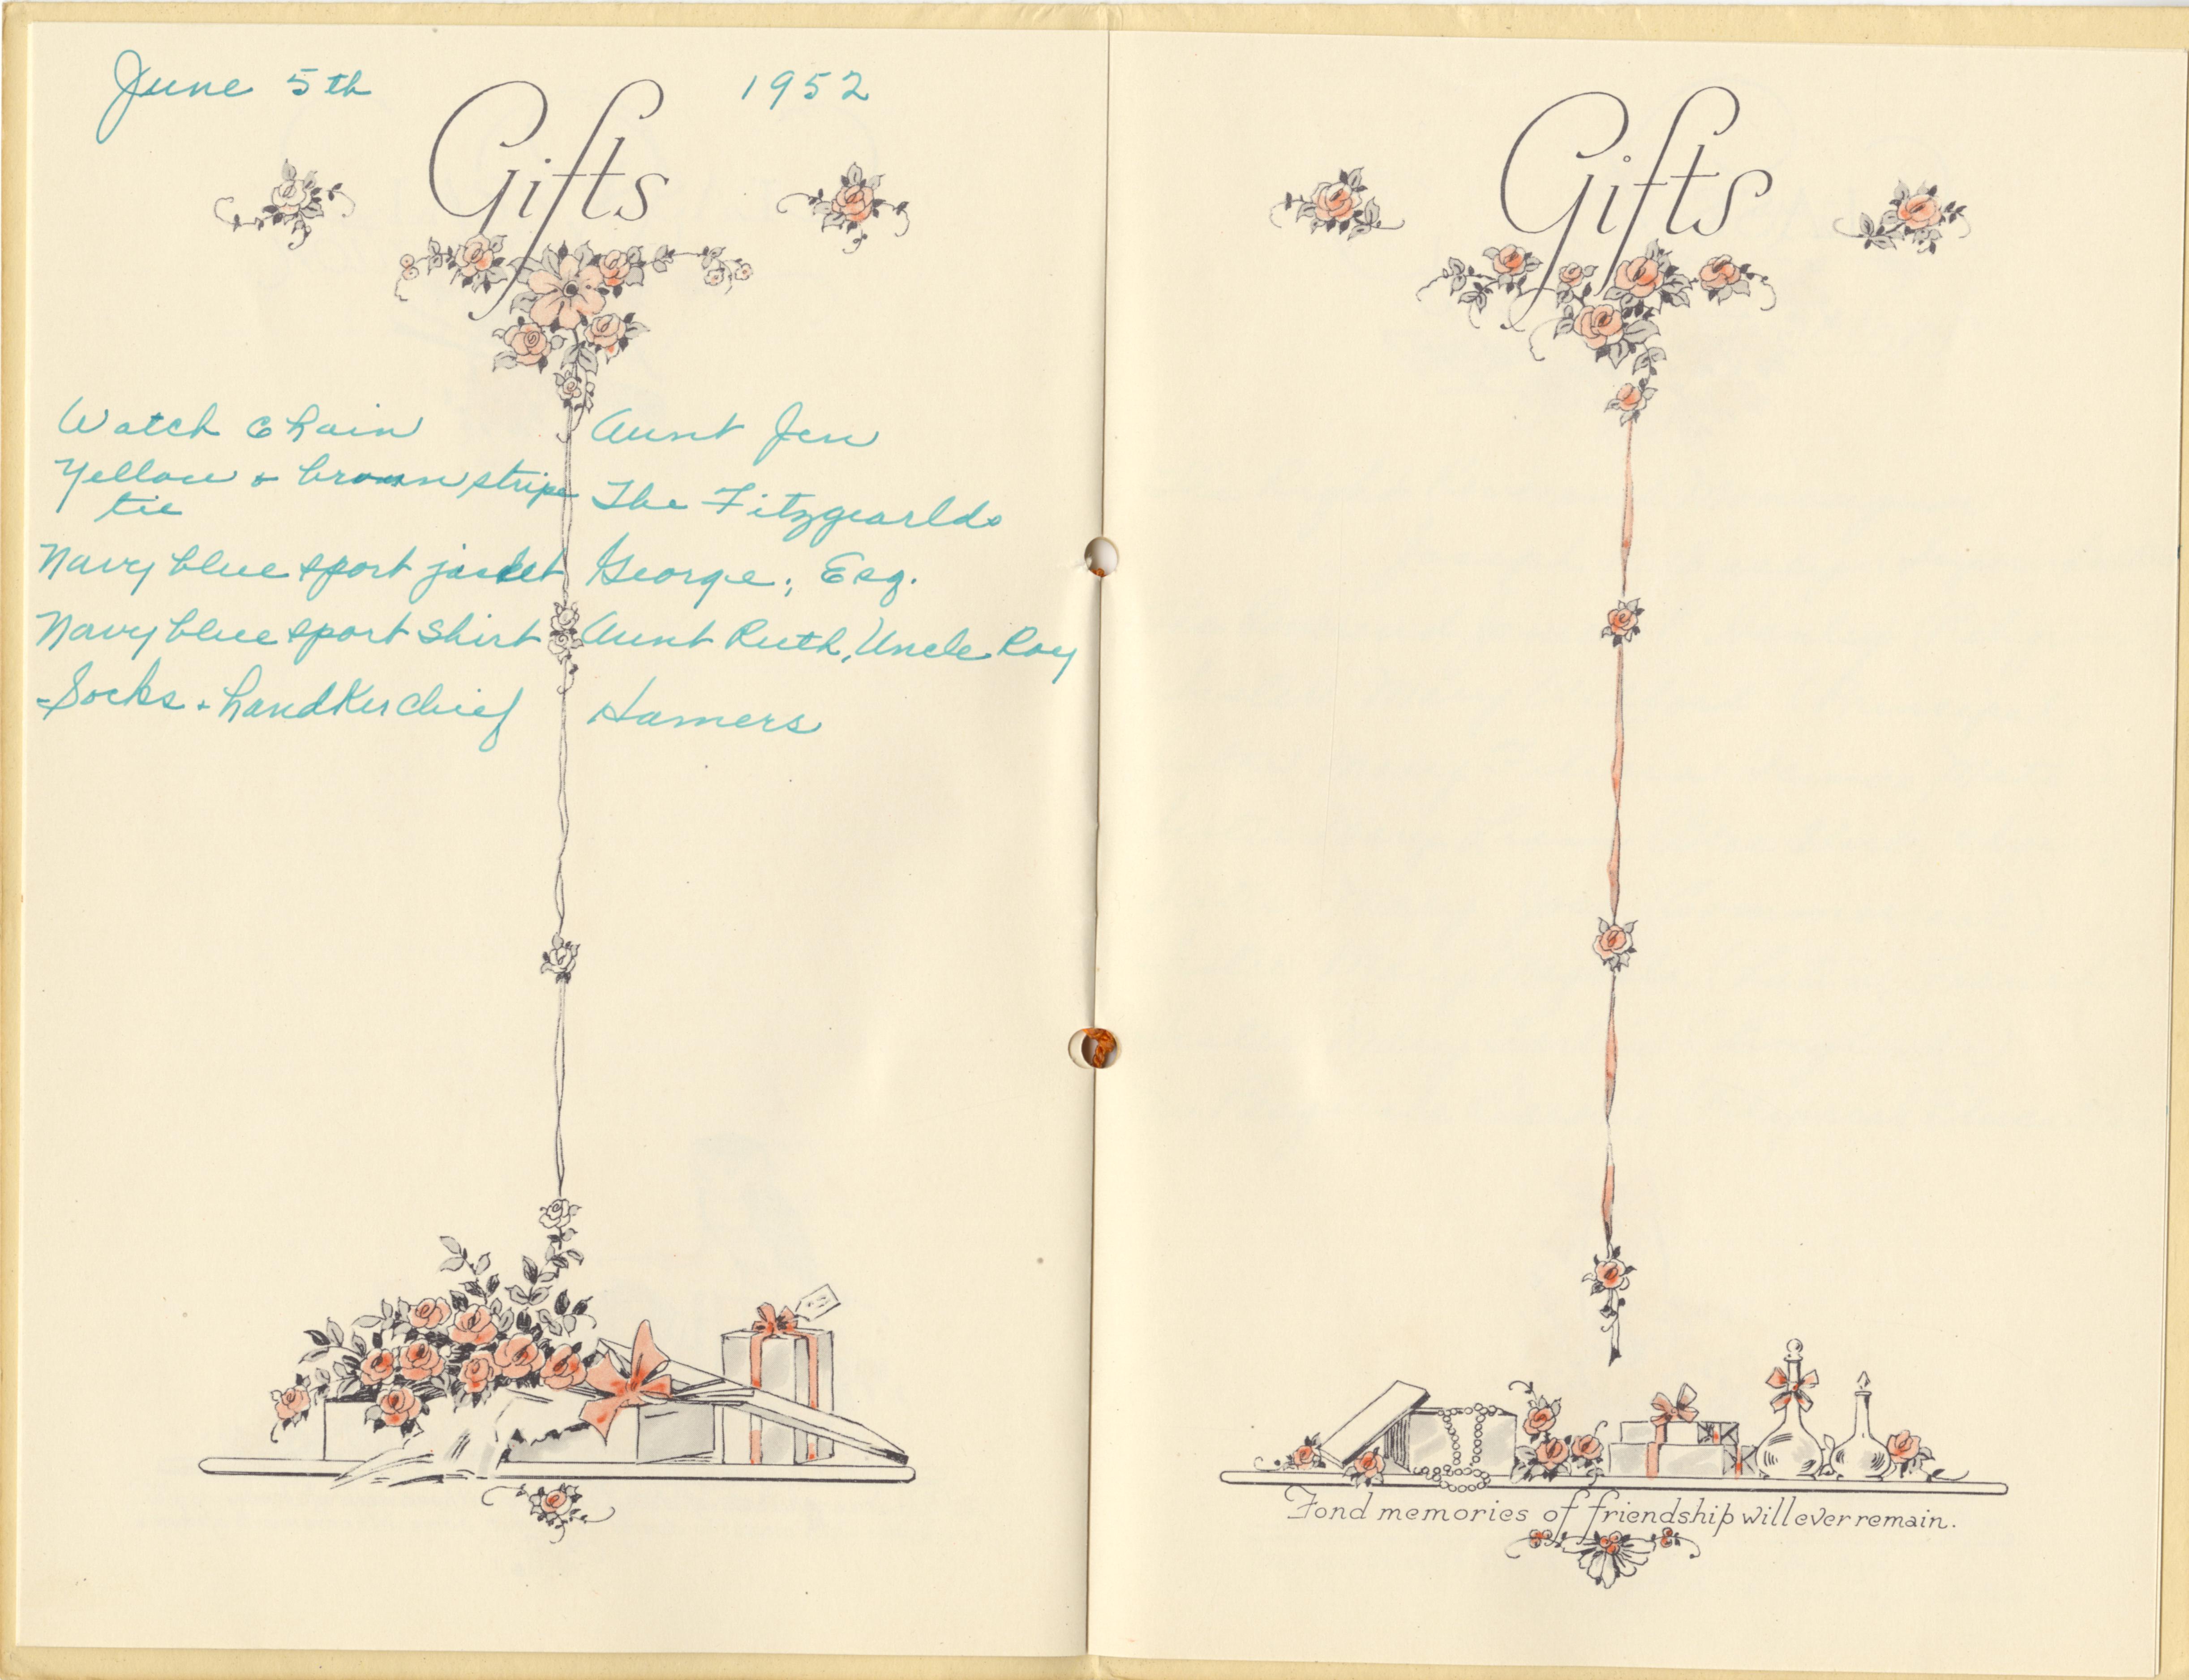 June 5th 1952
Gifts
Watch Chain Aunt Jen
Yellow & brown stripe The Fitzgearlds
tie
Navy blue sport jacket George, Esq.
Navy blue sport shirt Aunt Ruth, Uncle Roy
Socks + handkerchief Hamers
Gifts
Fond memories of friendship will ever remain.